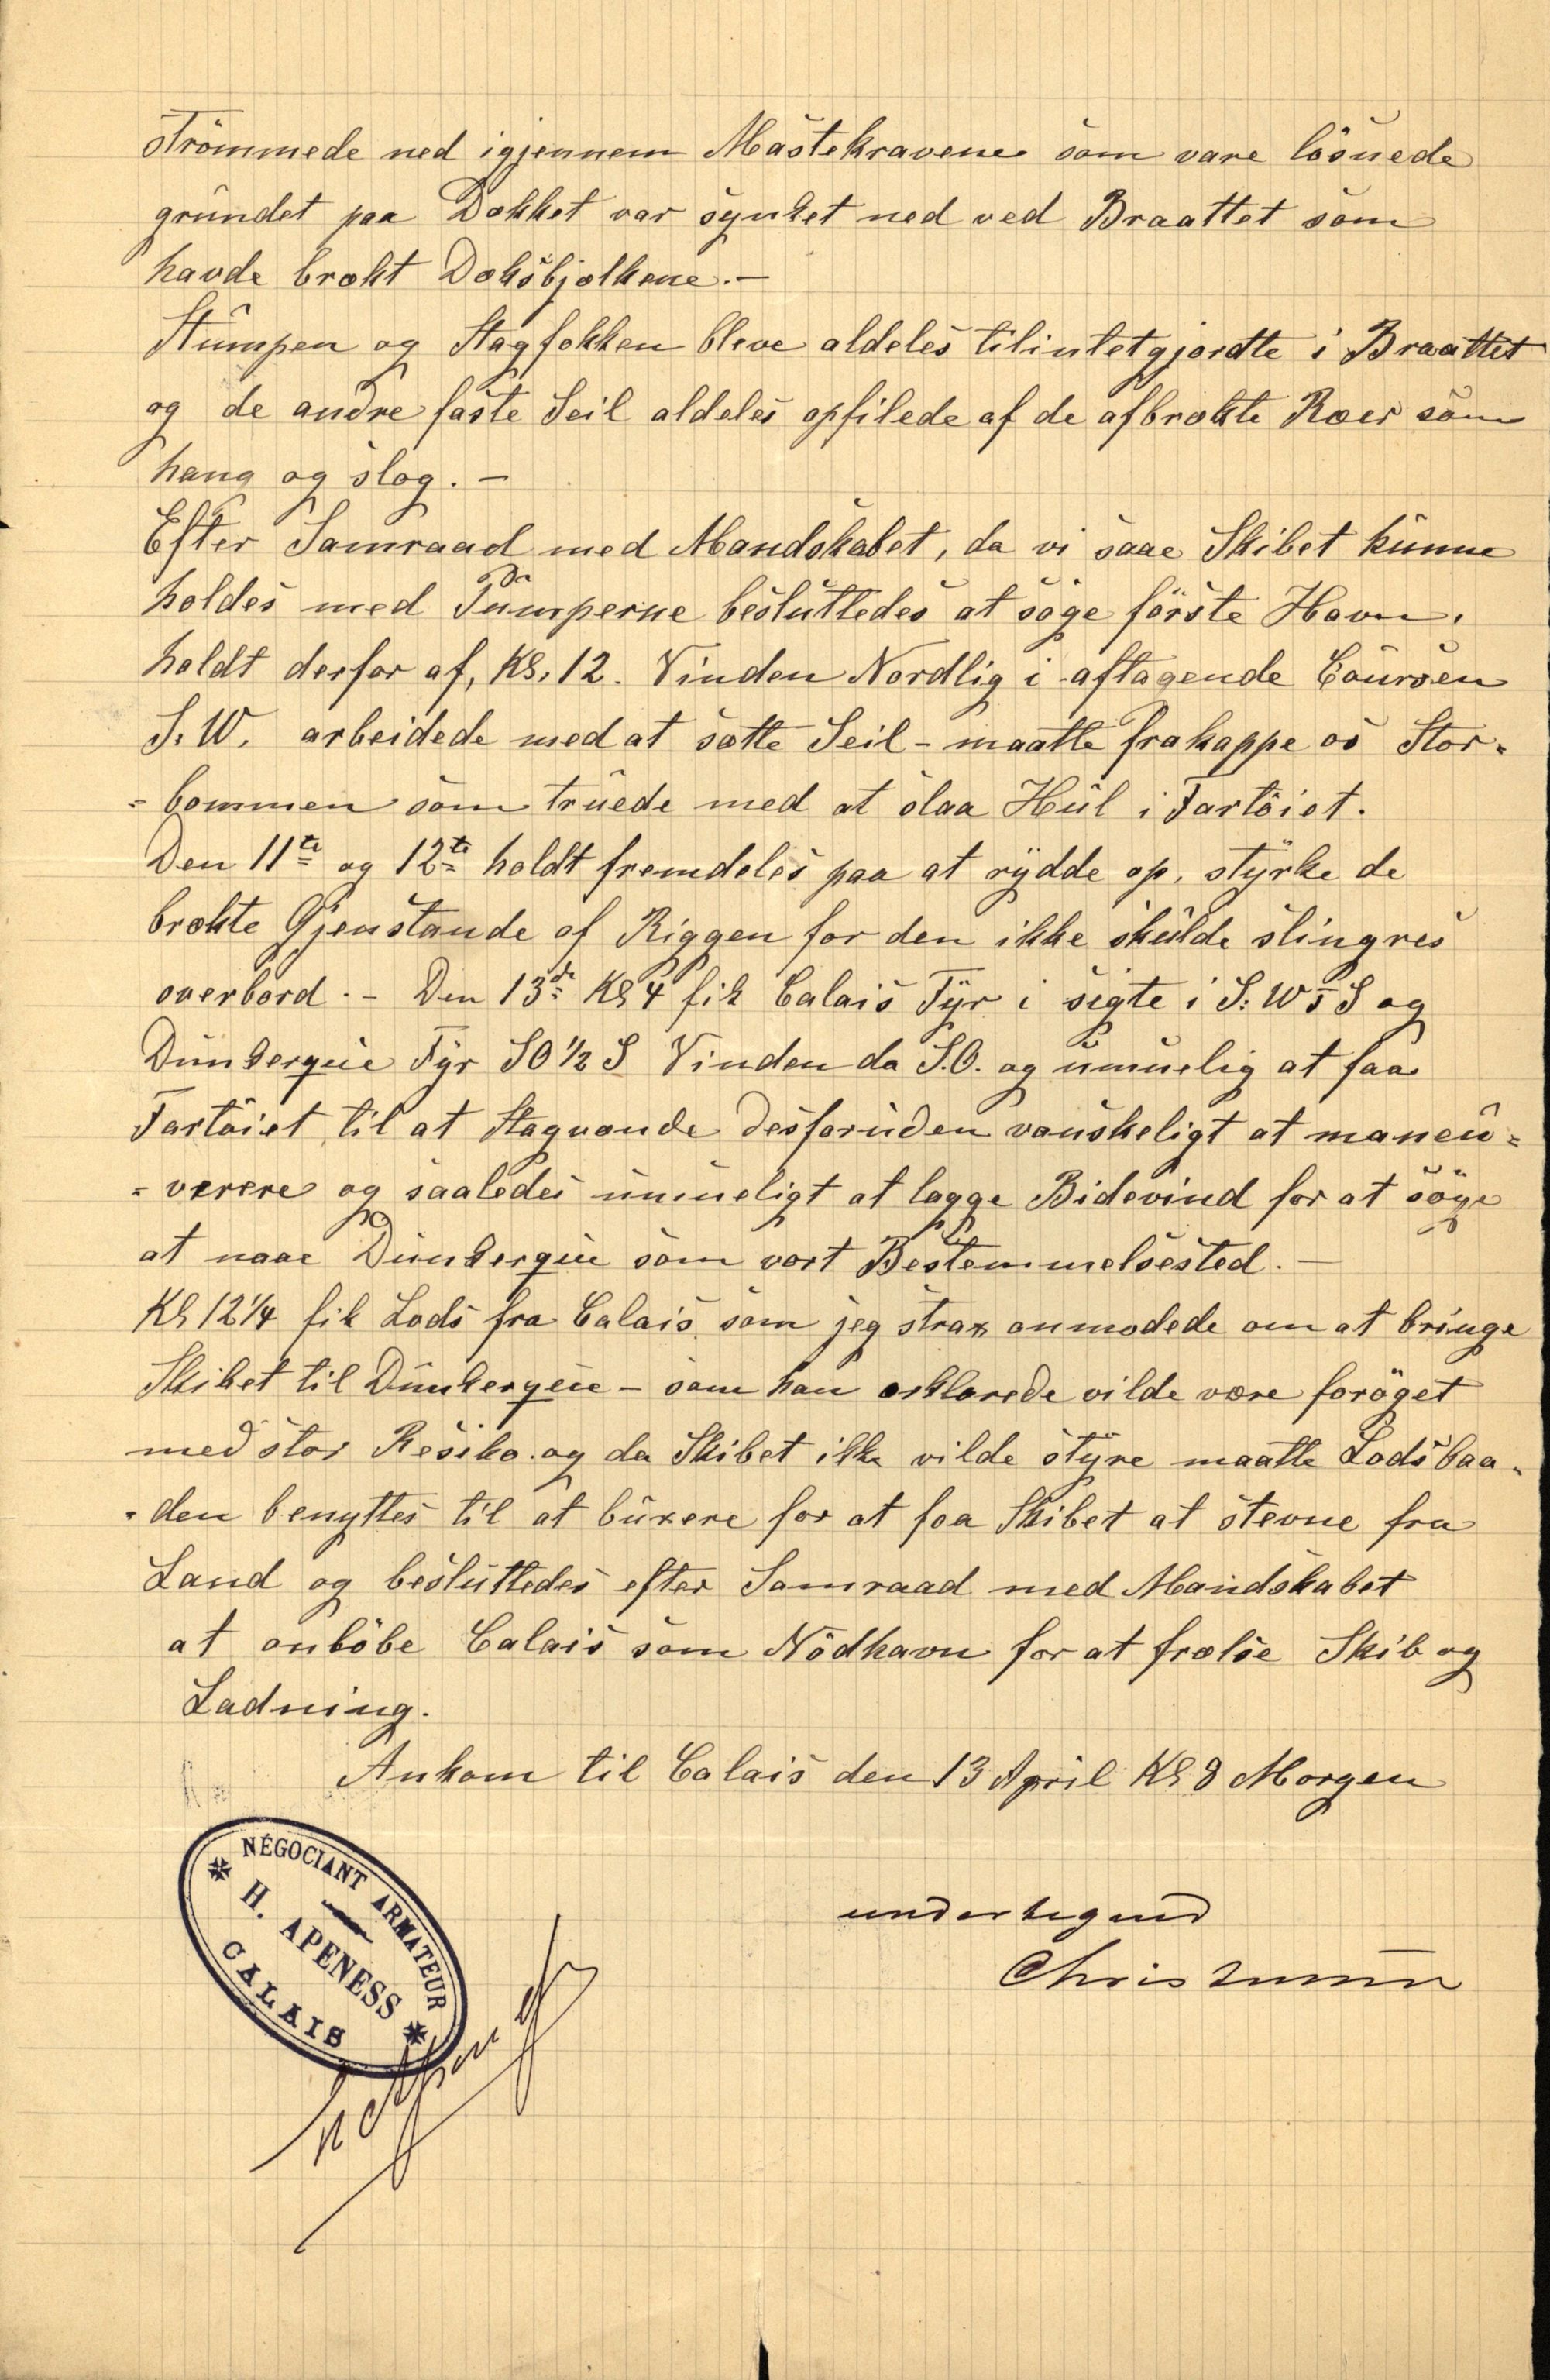 strömmede ned igjennem Mastekravene som vare lösnede
grundet paa Dækket var synket ned ved Braattet som
havde brækt Dæksbjælkene.-
Stumpen og Stagfokken bleve aldeles tilintetgjordte i Braattet
og de andre faste Seil aldeles opfilede af de afbrækte Ræer som
hang og slog. -
Efter Samraad med Mandskabet, da vi saae Skibet kunne
holdes med Pumperne besluttedes at söge förste Havn.
holdt derfor af, Kl. 12. Vinden Nordlig i aftagende Coursen
S. W. arbeidede med at sætte Seil - maatte frakappe os Stor=
=bommen som truede med at slaa Hul i Fartöiet.
Den 11te og 12te holdt fremdeles paa at rydde op, styrke de
brækte Gjenstande af Riggen for den ikke skulde slingres
overbord. - Den 13de Kl 4 fik Calais Fyr i sigte i S: W t S og
Dunkerque Fyr SO ½ S Vinden da S.O. og umuelig at faa
Fartöiet til at Stagvænde desforuden vanskeligt at maneu=
=verere og saaledes umueligt at lægge Bidevind for at söge
at naae Dunkerque som vort Bestemmelsested. -
Kl 12¼ fik Lods fra Calais som jeg strax anmodede om at bringe
Skibet til Dunkerque - som han erklærede vilde være foröget
med stor Resiko. og da Skibet ikke vilde styre maatte Lodsbaa=
=den benyttes til at buxere for at faa Skibet at stevne fra
Land og besluttedes efter Samraad med Mandskabet
at anlöbe Calais som Nödhavn for at frælse Skib og
Ladning.
Ankom til Calais den 13 April Kl 8 Morgen
undertegned
NÉGOCIANT ARMATEUR
H. APENESS
CALAIS